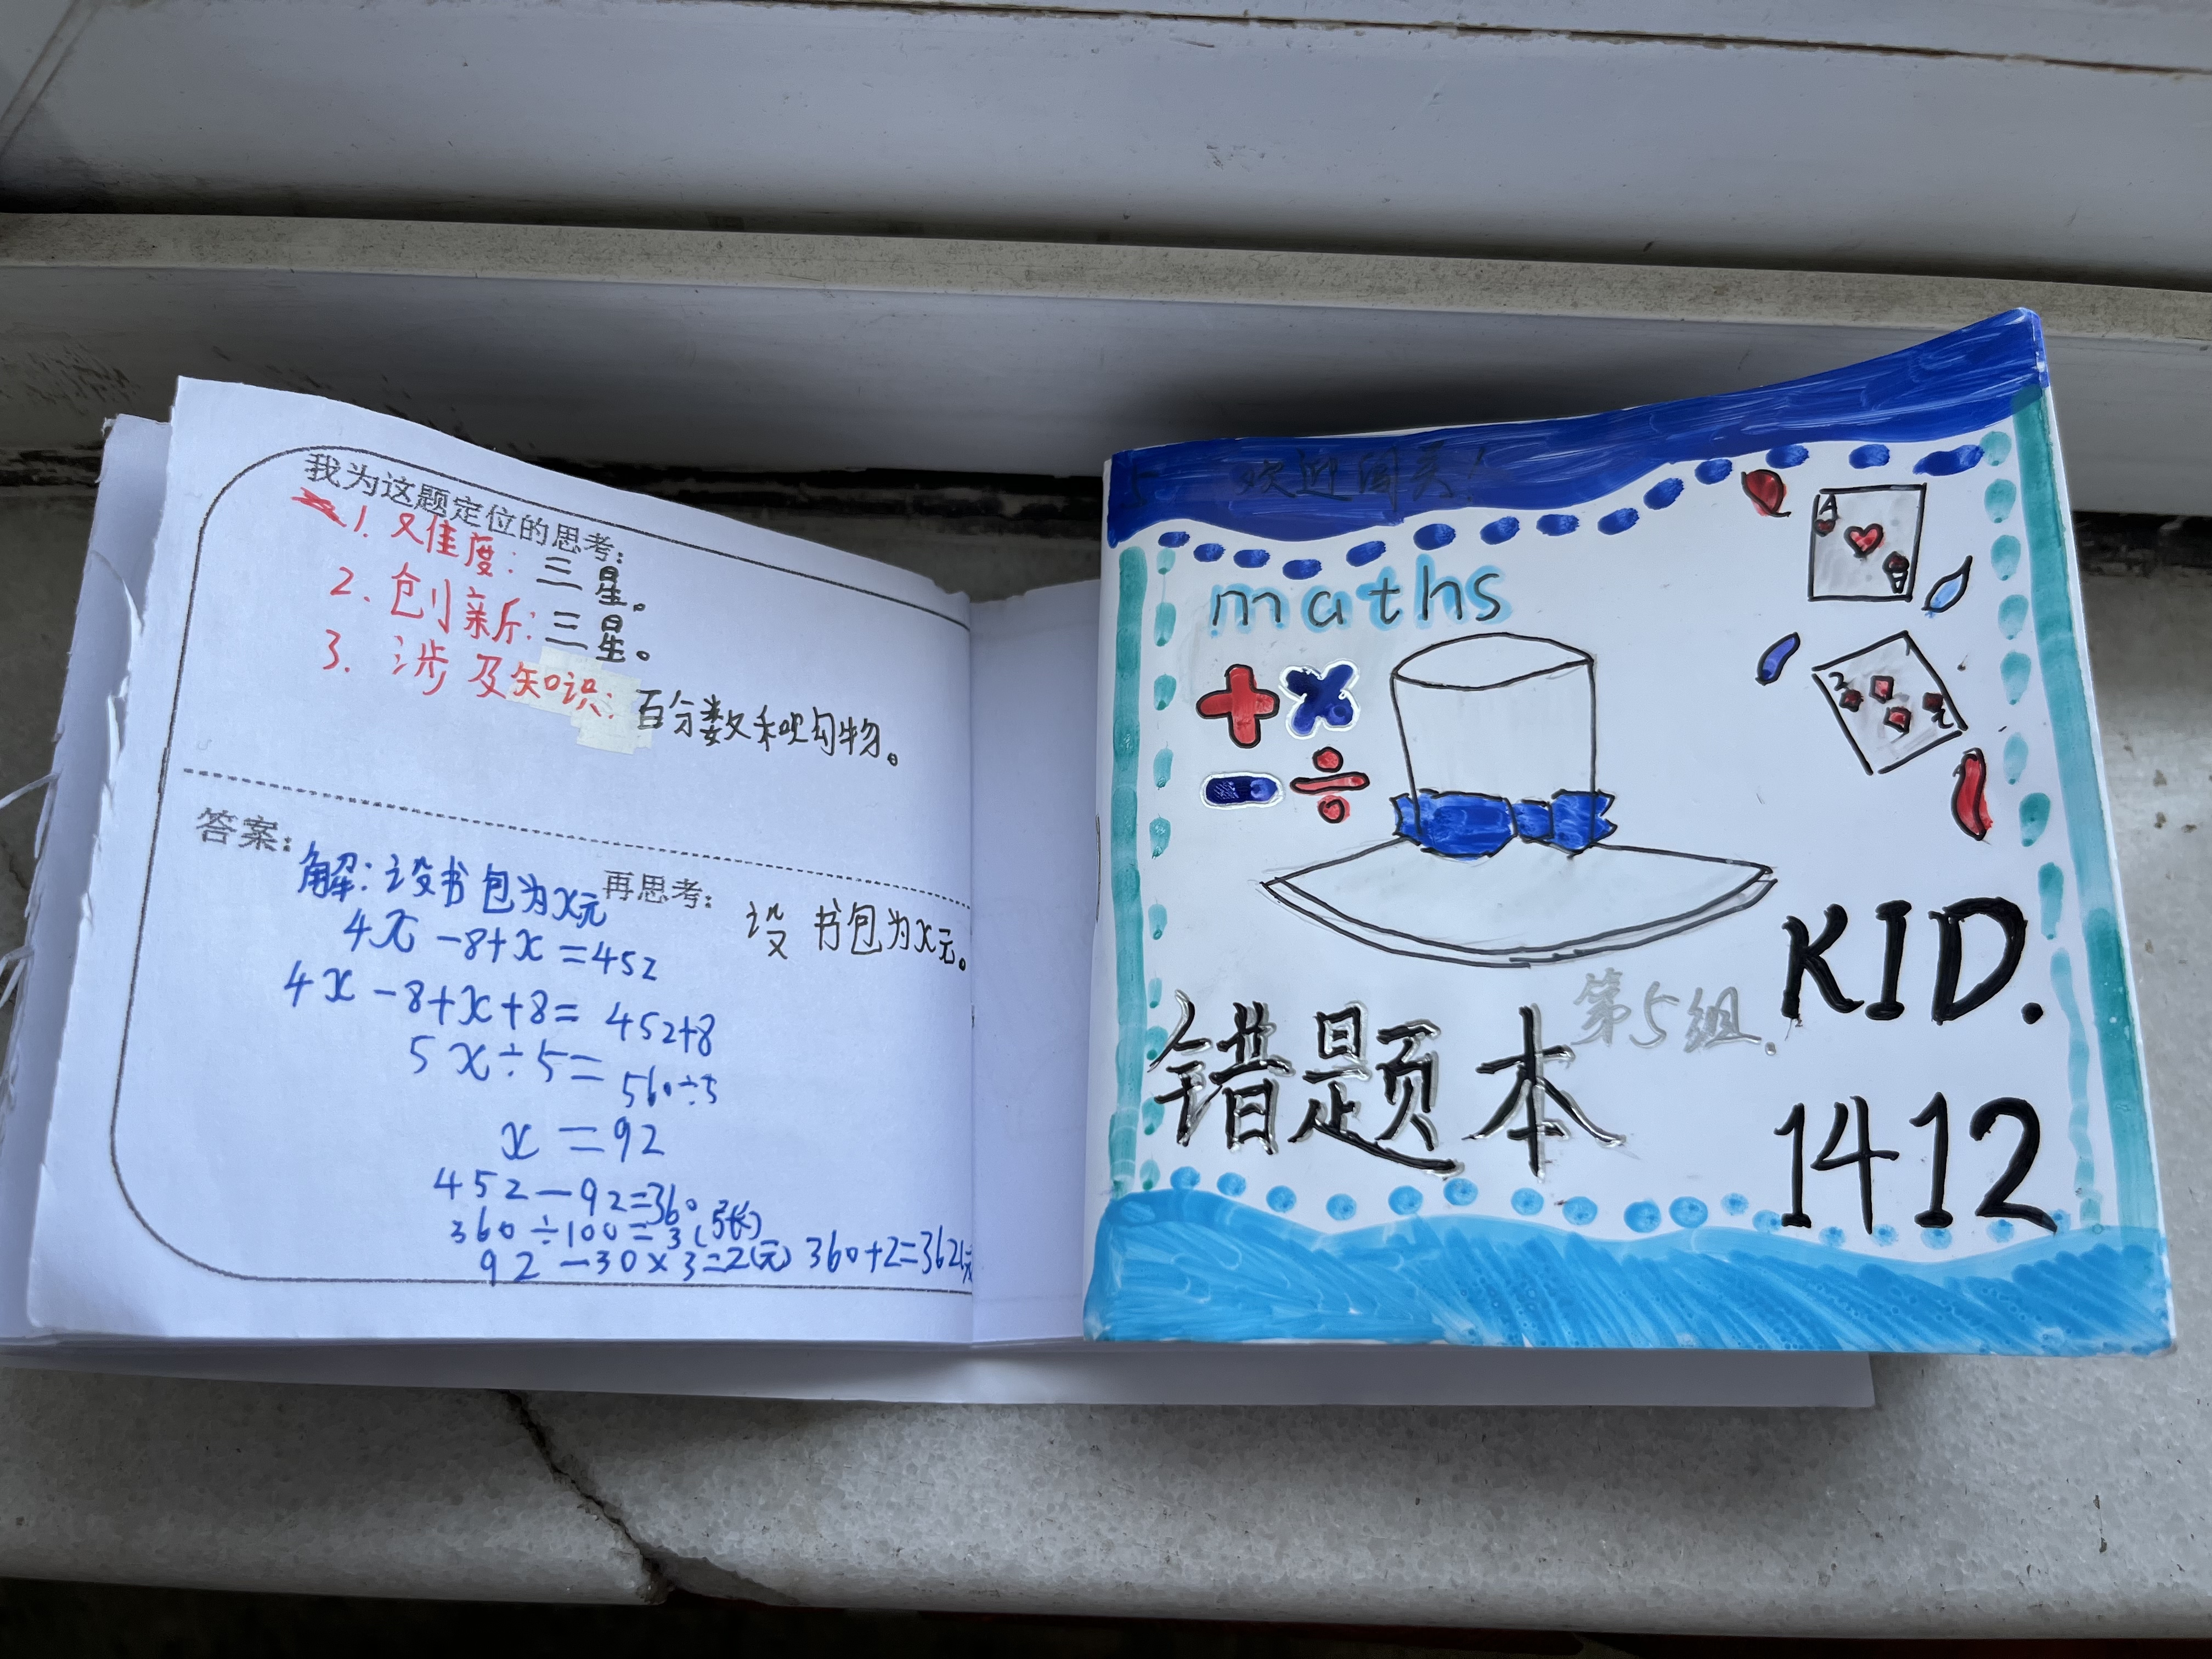 我为这题定位的思考:
1. 难度: 三星。
2. 创新: 三星。
3. 涉及知识: 百分数和购物。
答案:
解:设书包为x元
4x-8+x=452
4x-8+x+8=452+8
5x÷5=560÷5
x=92
452-92=360
360÷100=3(张)
92-30×3=2(元) 360+2=362(元
再思考:
设书包为x元。
5 欢迎闯关!
maths
+ ×
- ÷
A
2
2
KID.
第5组.
错题本
1412